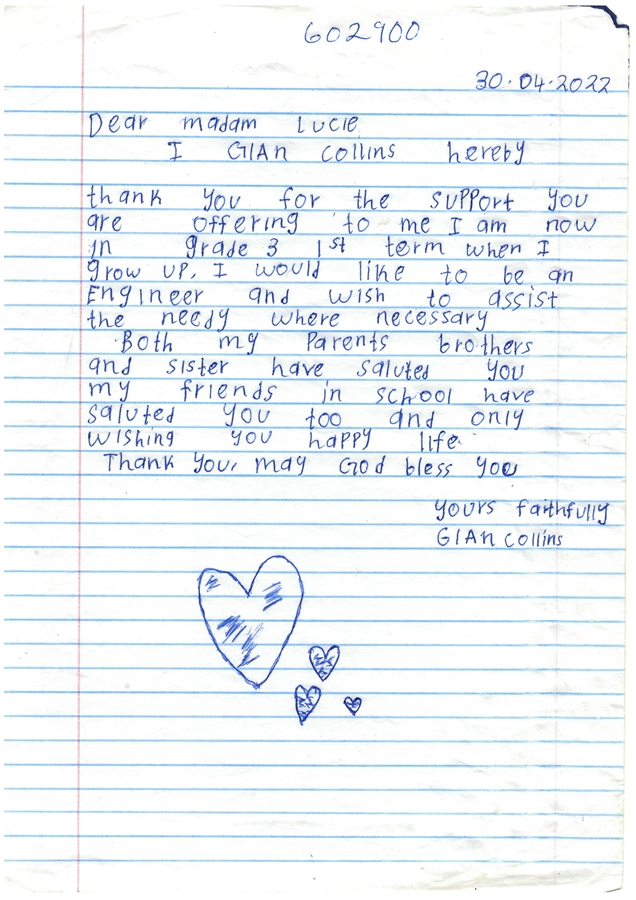 602900
30.04.2022
Dear madam Lucie
I GIAn collins hereby
thank you for the support you
are offering to me I am now
in grade 3 1st term when I
grow up, I would like to be an
Engineer and wish to assist
the needy where necessary
Both my Parents brothers
and sister have saluted you
my friends in school have
saluted you too and only
wishing you happy life.
Thank you, may God bless you
yours faithfully
GIAn collins